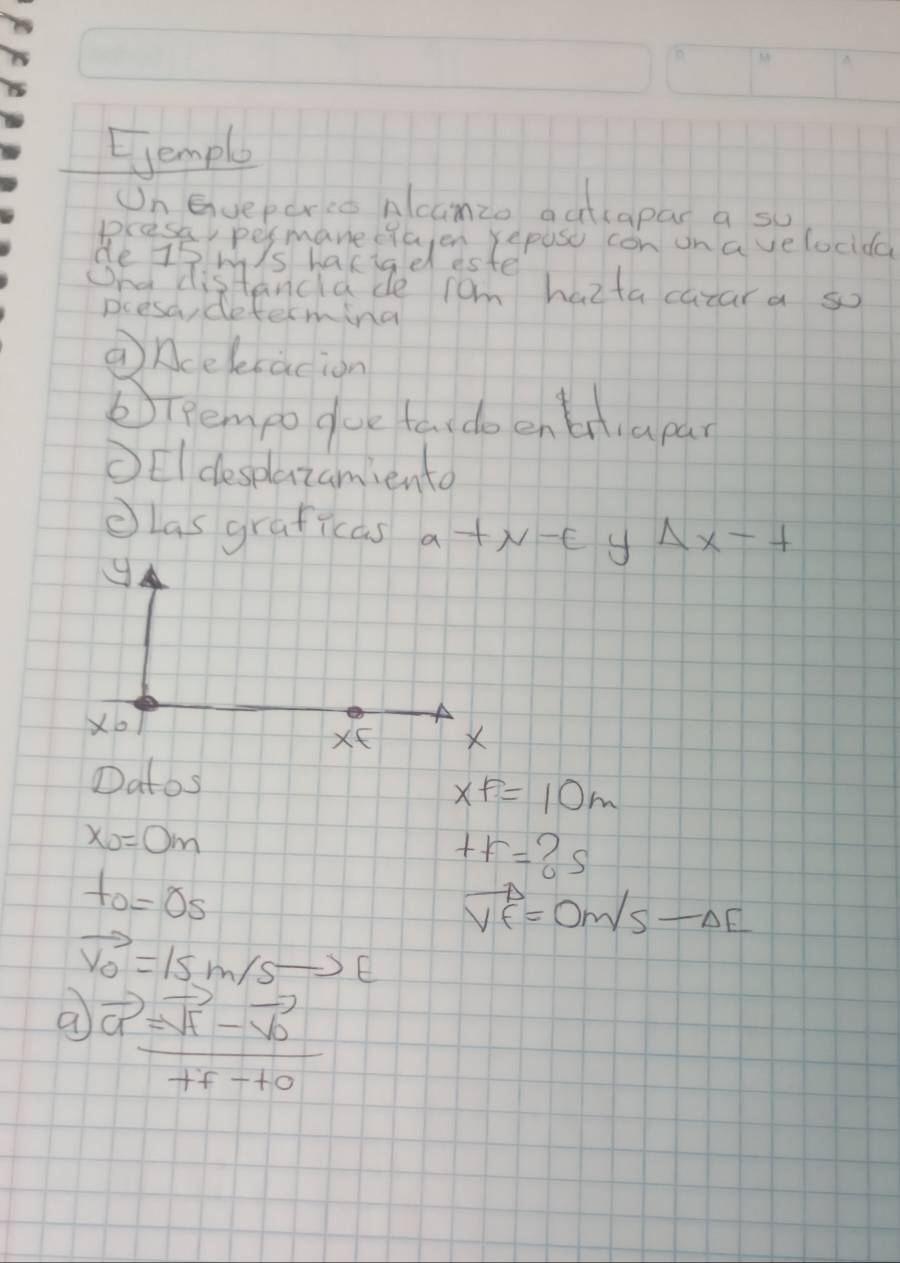 D M A
Ejemplo
Un Guepardo Alcanzo a atrapar a su
presa, permanecia, en reposo con una velocida
de 15 m/s hacia el este
Una distancia de 10m hazta cazar a su
presa, determina
a) Aceleracion
b) Tiempo que tardo en atrapar
c) El desplazamiento
c) Las graficas a-t v-t y Δx-t
y
x0 xf x
Datos xf = 10m
x0 = 0m tf = ? s
t0 = 0s Vf = 0m/s → E
V0 = 15 m/s → E
a) a = Vf - V0
tf - t0